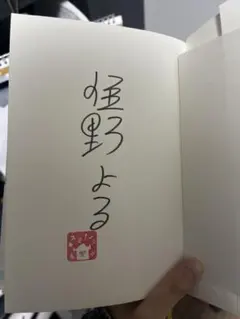 住野よる